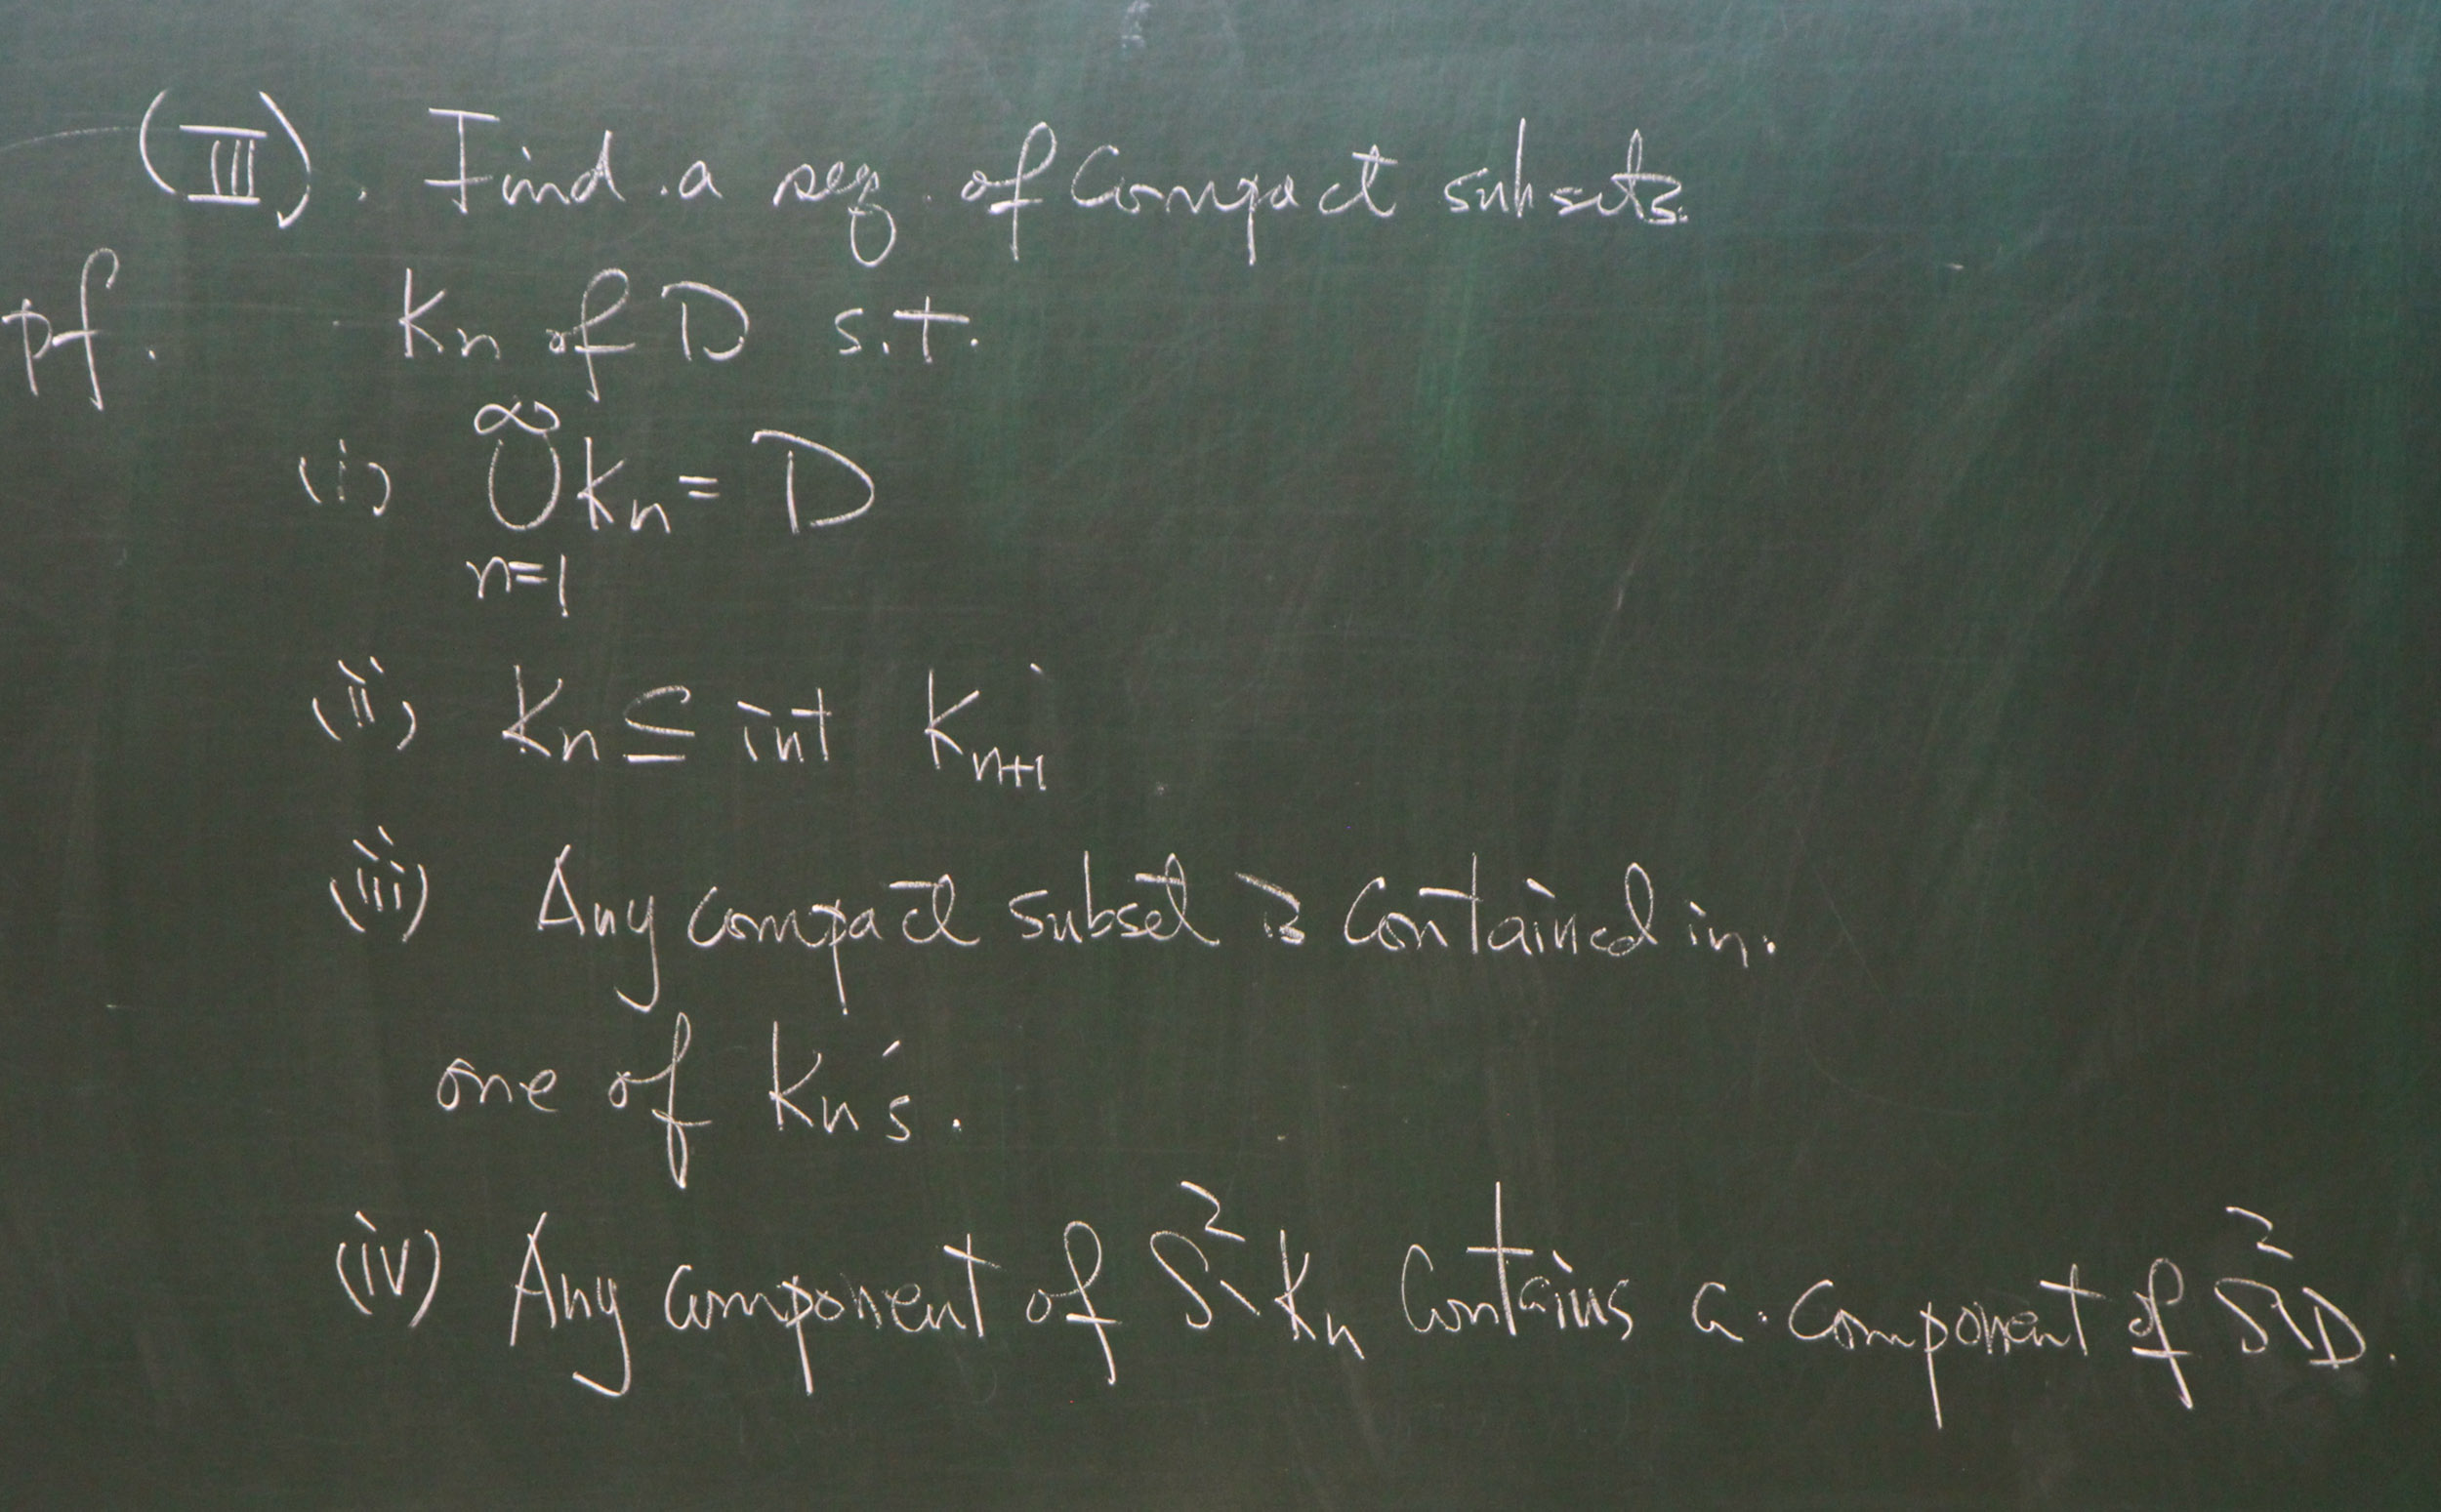 (III). Find a seq. of Compact subsets
pf. Kn of D s.t.
(i) ∞∪n=1 Kn = D
(ii) Kn ⊆ int Kn+1
(iii) Any compact subset is contained in.
one of Kn's.
(iv) Any component of S²\Kn Contains a component of S²\D.